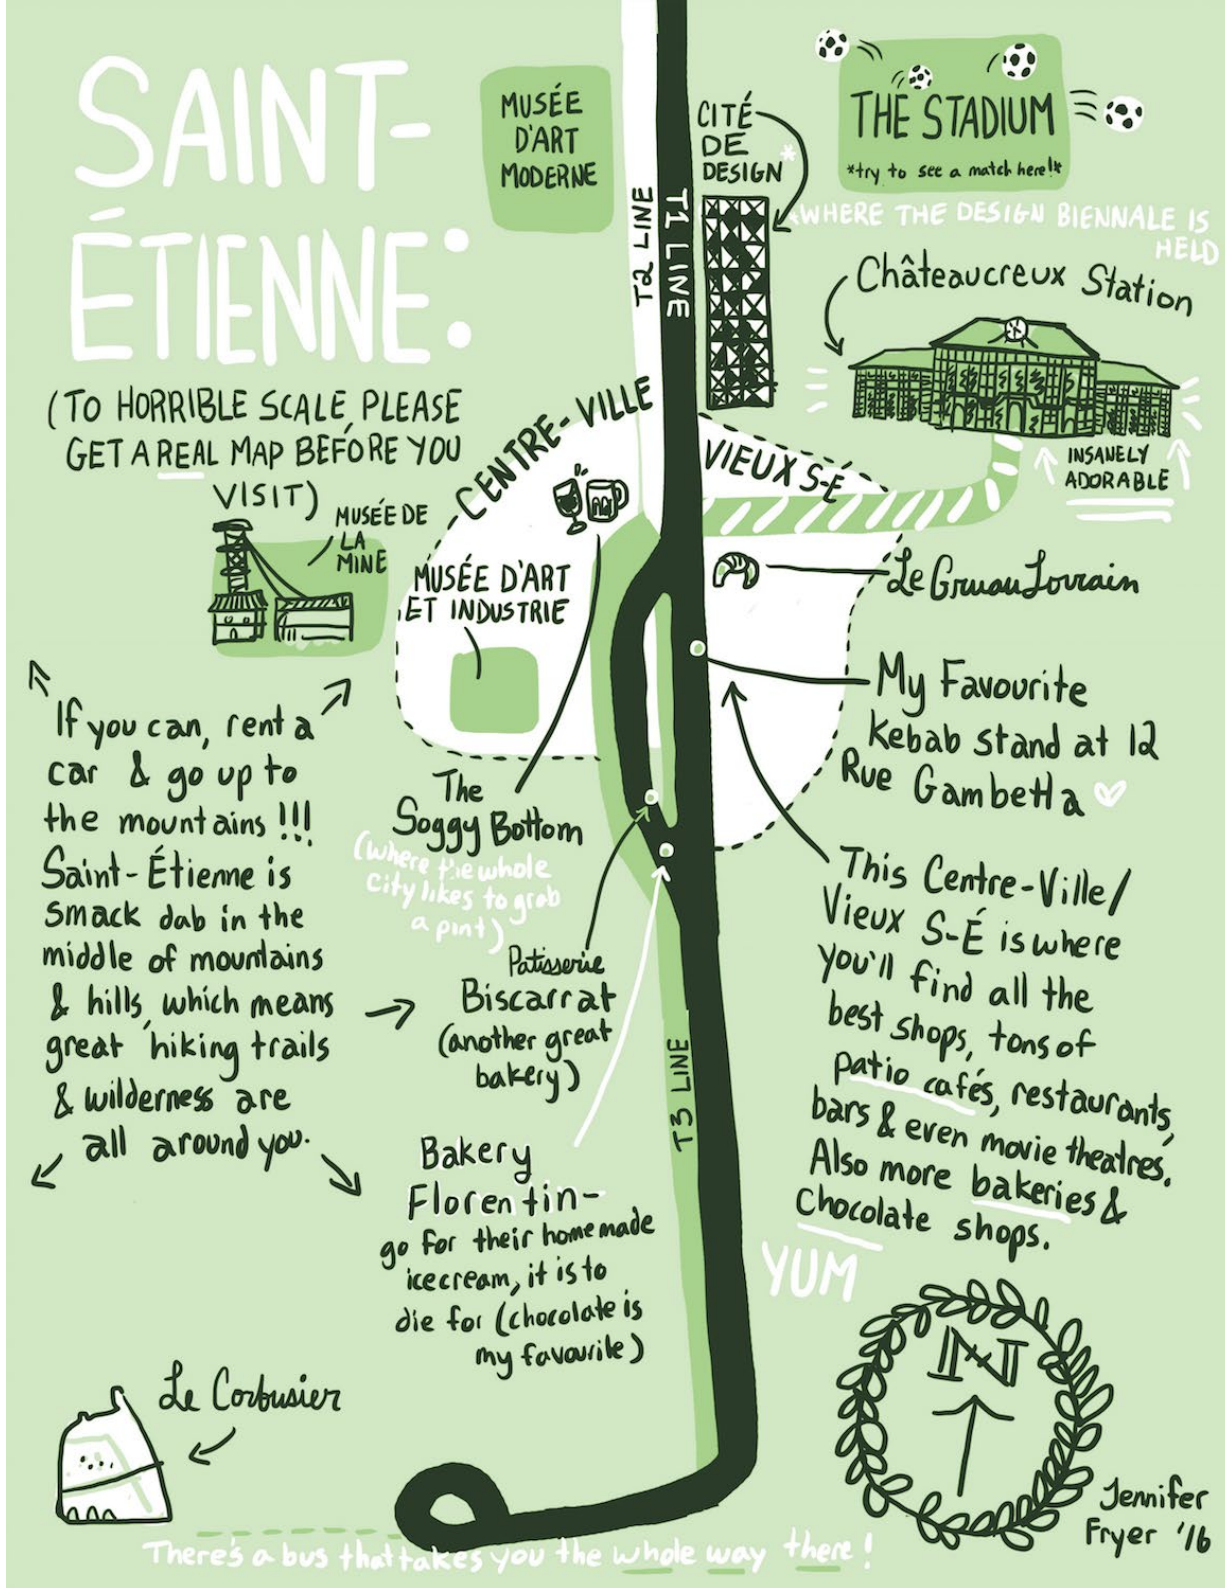 SAINT-
ÉTIENNE:
(TO HORRIBLE SCALE PLEASE
GET A REAL MAP BEFORE YOU
VISIT)
MUSÉE
D'ART
MODERNE
T2 LINE
T1 LINE
CITÉ
DE
DESIGN*
THE STADIUM
*try to see a match here!*
*WHERE THE DESIGN BIENNALE IS
HELD
Châteaucreux Station
INSANELY
ADORABLE
CENTRE-VILLE
VIEUX S-É
MUSÉE DE
LA
MINE
MUSÉE D'ART
ET INDUSTRIE
Le Gruau Lorrain
My Favourite
Kebab stand at 12
Rue Gambetta
If you can, rent a
car & go up to
the mountains!!!
Saint-Étienne is
smack dab in the
middle of mountains
& hills, which means
great hiking trails
& wilderness are
all around you.
The
Soggy Bottom
(where the whole
city likes to grab
a pint)
Patisserie
Biscarrat
(another great
bakery)
This Centre-Ville/
Vieux S-É is where
you'll find all the
best shops, tons of
patio cafés, restaurants,
bars & even movie theatres.
Also more bakeries &
chocolate shops.
YUM
T3 LINE
Bakery
Florentin-
go for their homemade
icecream, it is to
die for (chocolate is
my favourite)
Le Corbusier
N
Jennifer
Fryer '16
There's a bus that takes you the whole way there!